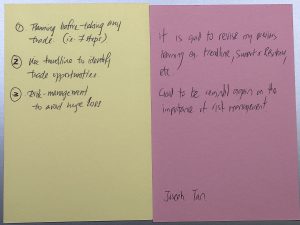 ① Planning before taking any
trade. (ie 7 steps)
② Use trendline to identify
trade opportunities
③ Risk-management
to avoid huge loss
It is good to revise my previous
learning on trendline, Support & Resistance,
etc
Good to be remind again on the
importance of risk management
Tan